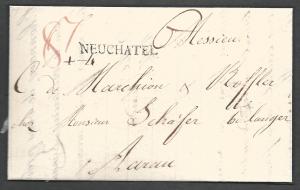 87
Messieurs
NEUCHATEL
C. de Marchion & Roffler
chez Monsieur Schäfer boulanger
Aarau